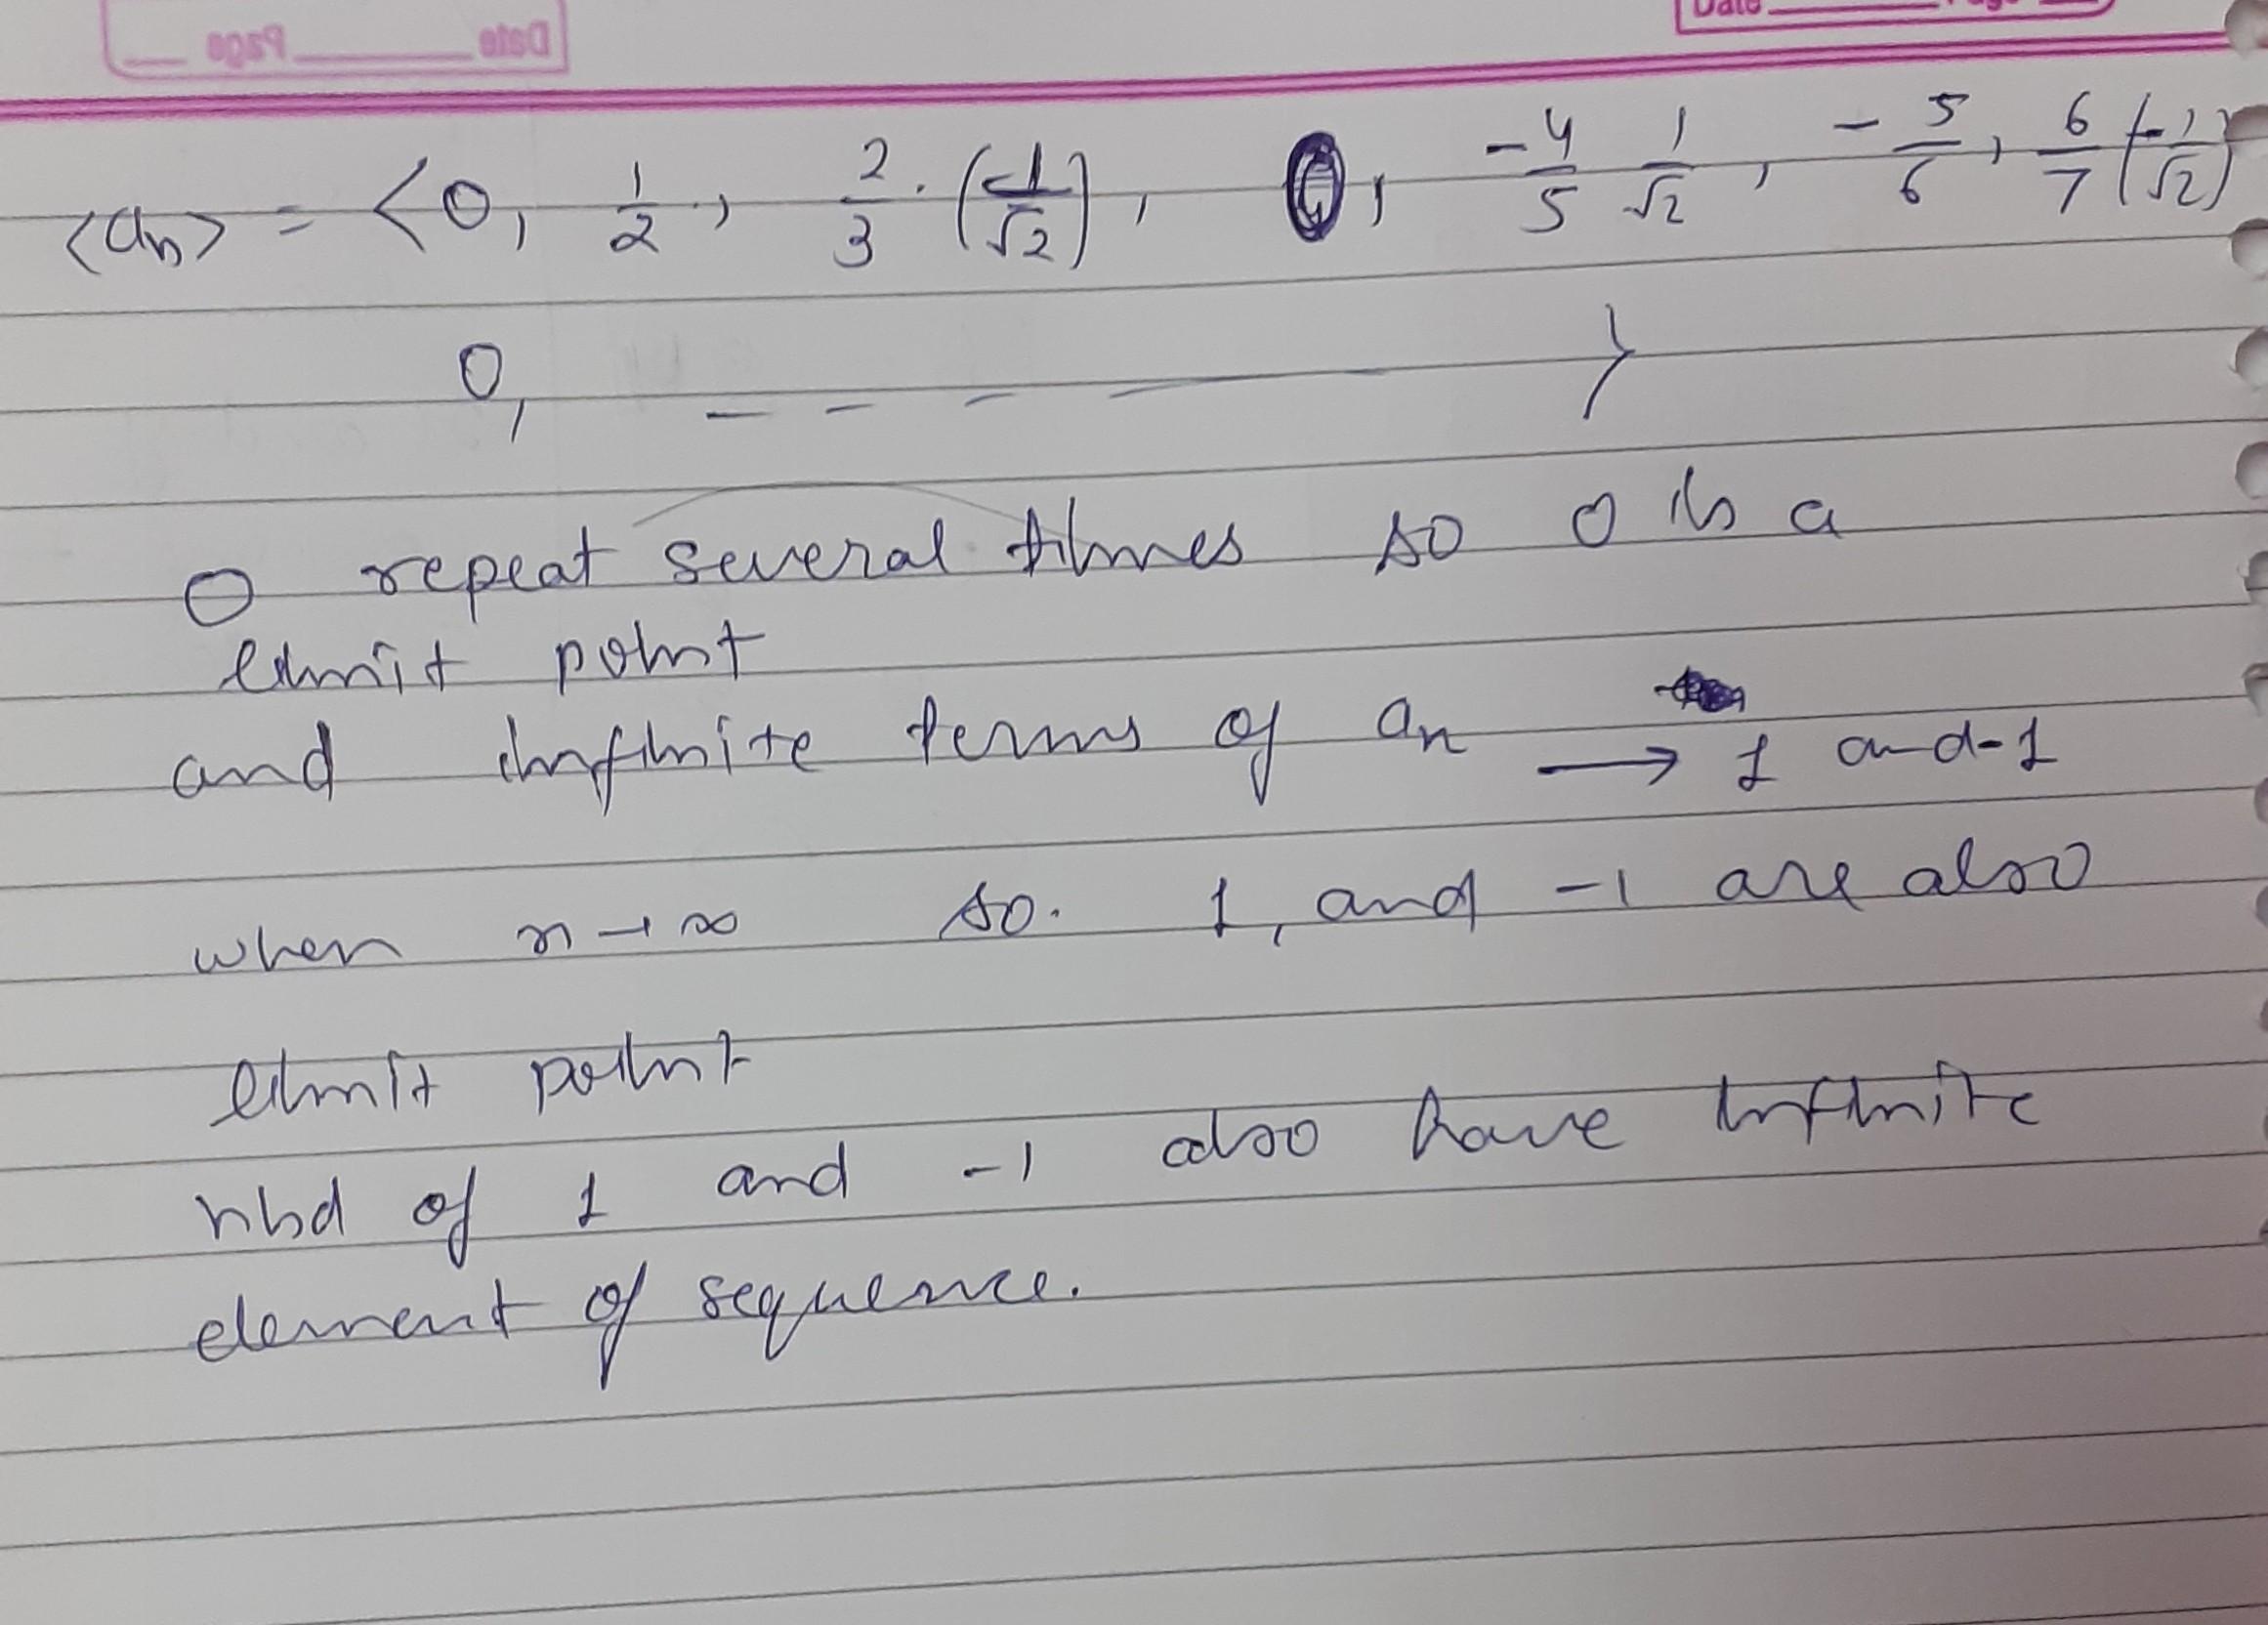 Date Page
Date Page
<an> = <0, 1/2, 2/3 · (-1/√2), 0, -4/5 1/√2, -5/6, 6/7 (-1/√2)
0, - - - - >
0 repeat several times so 0 is a
limit point
and infinite terms of an → 1 and -1
when n → ∞ so. 1, and -1 are also
limit point
nbd of 1 and -1 also have infinite
element of sequence.